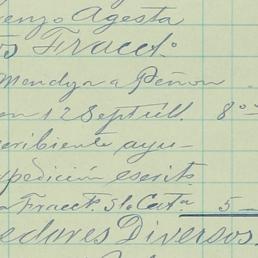 enzo Agesta
os Fracct.º
Mendyn a Peñon
en 12 Sept. ull. 8º
cribiente ayu-
xpedición escrit.
a Fracct. Sta Cata 5 -
edores Diversos.